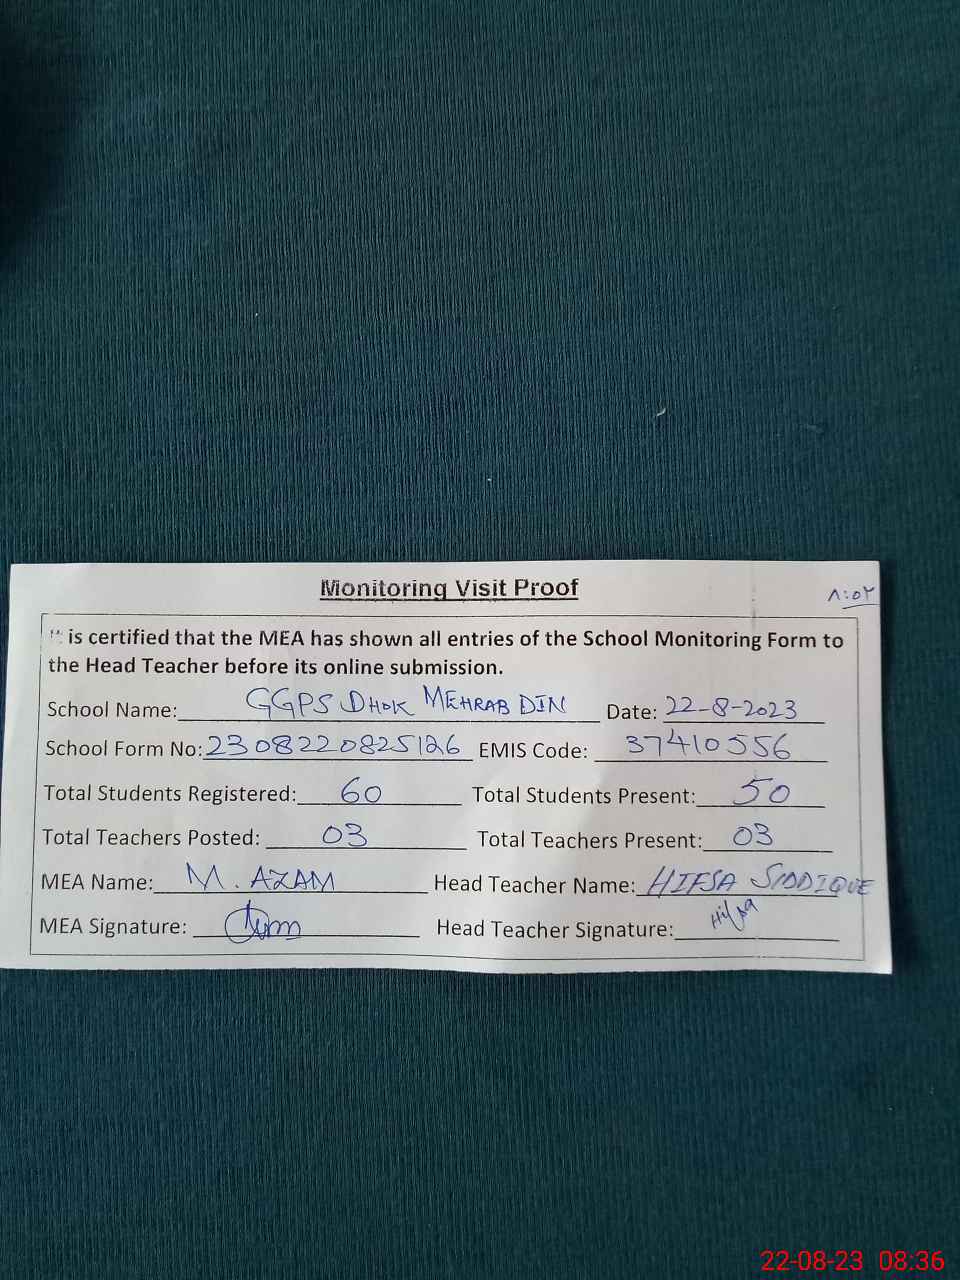 Monitoring Visit Proof
۸:۵۲
It is certified that the MEA has shown all entries of the School Monitoring Form to
the Head Teacher before its online submission.
School Name: GGPS DHOK MEHRAB DIN Date: 22-8-2023
School Form No: 2308220825126 EMIS Code: 37410556
Total Students Registered: 60 Total Students Present: 50
Total Teachers Posted: 03 Total Teachers Present: 03
MEA Name: M. AZAM Head Teacher Name: HIFSA SIDDIQUE
MEA Signature: Head Teacher Signature: Hifsa
22-08-23 08:36